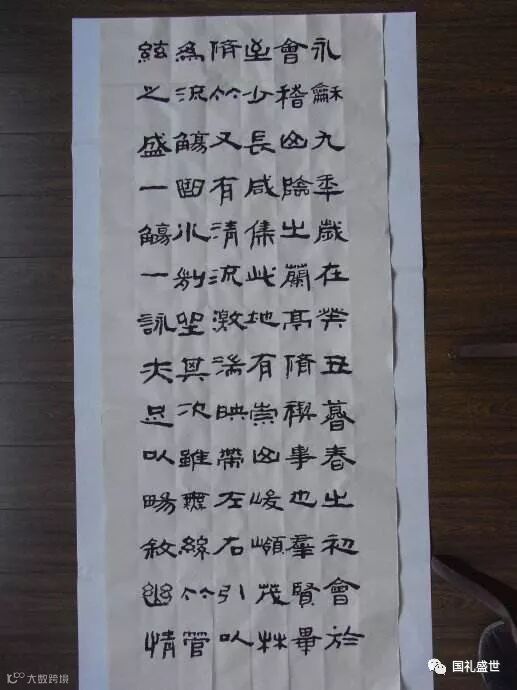 永龢九秊歲在癸丑暮春之初會於
會稽山陰之蘭亭脩禊事也羣賢畢
至少長咸集此地有崇山峻嶺茂林
脩竹又有清流激湍映帶左右引以
為流觴曲水列坐其次雖無絲竹管
絃之盛一觴一詠亦足以暢敘幽情
大数跨境
国礼盛世